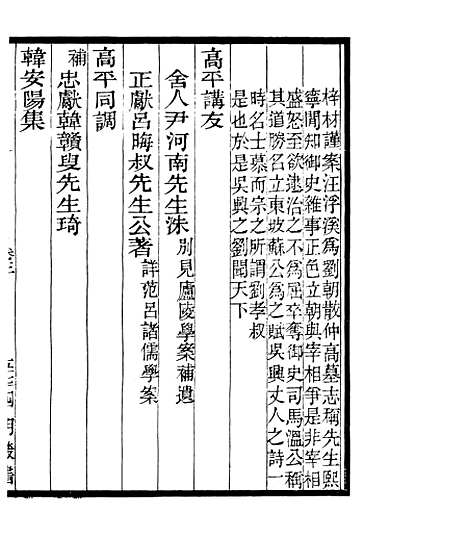 梓材謹案汪浮溪爲劉朝散仲高墓志稱先生熙
寧閒知御史雜事正色立朝與宰相爭是非宰相
盛怒至欲逮治之不爲屈卒奪御史司馬溫公稱
其道勝名立東坡蘇公爲之賦吳興丈人之詩一
時名士慕而宗之所謂劉孝叔
是也於是吳興之劉聞天下
高平講友
舍人尹河南先生洙別見廬陵學案補遺
正獻呂晦叔先生公著詳范呂諸儒學案
高平同調
補忠獻韓贛叟先生琦
韓安陽集